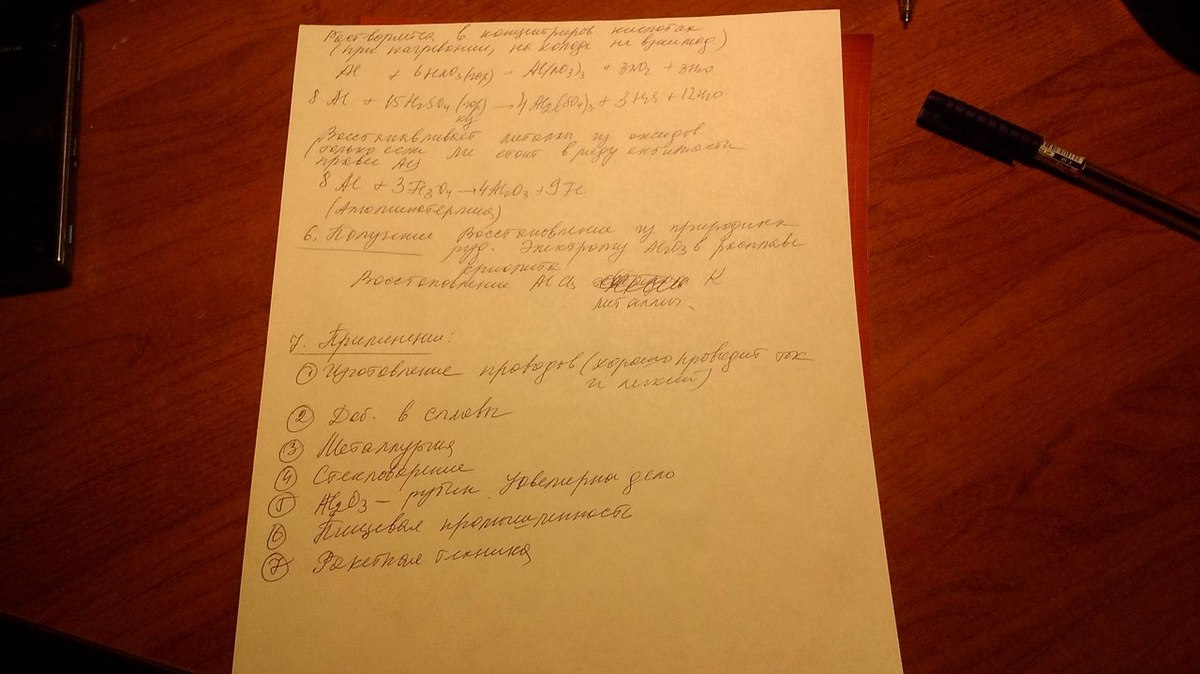 Растворяется в концентриров кислотах
(при нагревании, на холоде не взаимод)
Al + 6HNO3(гор) → Al(NO3)3 + 3NO2 + 3H2O
8 Al + 15H2SO4(гор) → 4Al2(SO4)3 + 3H2S + 12H2O
Восстанавливает металлы из оксидов
(только если Ме стоит в ряду активности
правее Al)
8 Al + 3Fe3O4 → 4Al2O3 + 9Fe
(Алюминотермия)
6. Получение Восстановление из природных
руд. Электролиз Al2O3 в расплаве
криолита
Восстановление AlCl3 K
металлом.
7. Применение:
① Изготовление проводов (хорошо проводит ток
и легкий)
② Доб. в сплавы
③ Металлургия
④ Стекловарение
⑤ Al2O3 – рубин Ювелирн дело
⑥ Пищевая промышленность
⑦ Ракетная техника